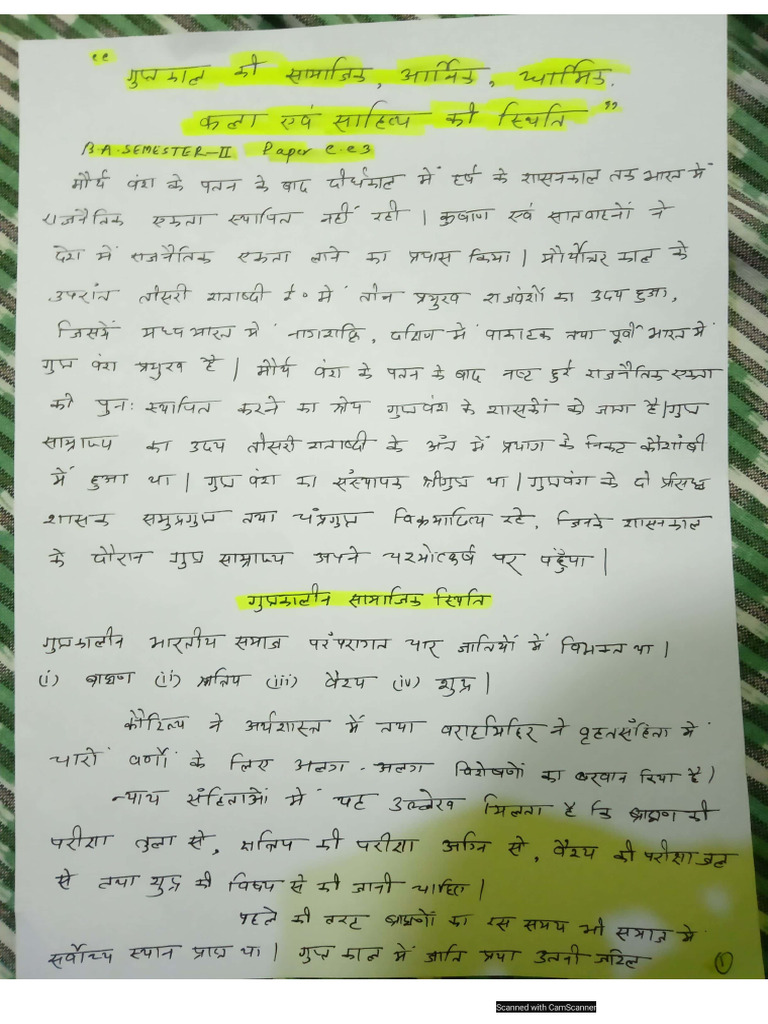 "गुप्तकाल की सामाजिक, आर्थिक, धार्मिक,
कला एवं साहित्य की स्थिति"
B.A. SEMESTER-II Paper C.C3
मौर्य वंश के पतन के बाद दीर्घकाल में हर्ष के शासनकाल तक भारत में
राजनैतिक एकता स्थापित नहीं रही। कुषाण एवं सातवाहनों ने
देश में राजनैतिक एकता लाने का प्रयास किया। मौर्योत्तर काल के
उपरांत तीसरी शताब्दी ई० में तीन प्रमुख राजवंशों का उदय हुआ,
जिसमें मध्य भारत में नागशक्ति, दक्षिण में वाकाटक तथा पूर्वी भारत में
गुप्त वंश प्रमुख है। मौर्य वंश के पतन के बाद नष्ट हुई राजनैतिक एकता
को पुनः स्थापित करने का श्रेय गुप्तवंश के शासकों को जाता है। गुप्त
साम्राज्य का उदय तीसरी शताब्दी के अंत में प्रयाग के निकट कौशांबी
में हुआ था। गुप्त वंश का संस्थापक श्रीगुप्त था। गुप्तवंश के दो प्रसिद्ध
शासक समुद्रगुप्त तथा चंद्रगुप्त विक्रमादित्य रहे, जिनके शासनकाल
के दौरान गुप्त साम्राज्य अपने चरमोत्कर्ष पर पहुँचा।
गुप्तकालीन सामाजिक स्थिति
गुप्तकालीन भारतीय समाज परंपरागत चार जातियों में विभक्त था।
(i) ब्राह्मण (ii) क्षत्रिय (iii) वैश्य (iv) शुद्र।
कौटिल्य ने अर्थशास्त्र में तथा वराहमिहिर ने वृहतसंहिता में
चारों वर्णों के लिए अलग-अलग विशेषणों का बखान किया है।
न्याय संहिताओं में यह उल्लेख मिलता है कि ब्राह्मण की
परीक्षा तुला से, क्षत्रिय की परीक्षा अग्नि से, वैश्य की परीक्षा जल
से तथा शुद्र की विषय से की जानी चाहिए।
पहले की तरह ब्राह्मणों का इस समय भी समाज में
सर्वोच्च स्थान प्राप्त था। गुप्त काल में जाति प्रथा उतनी जटिल
1
Scanned with CamScanner